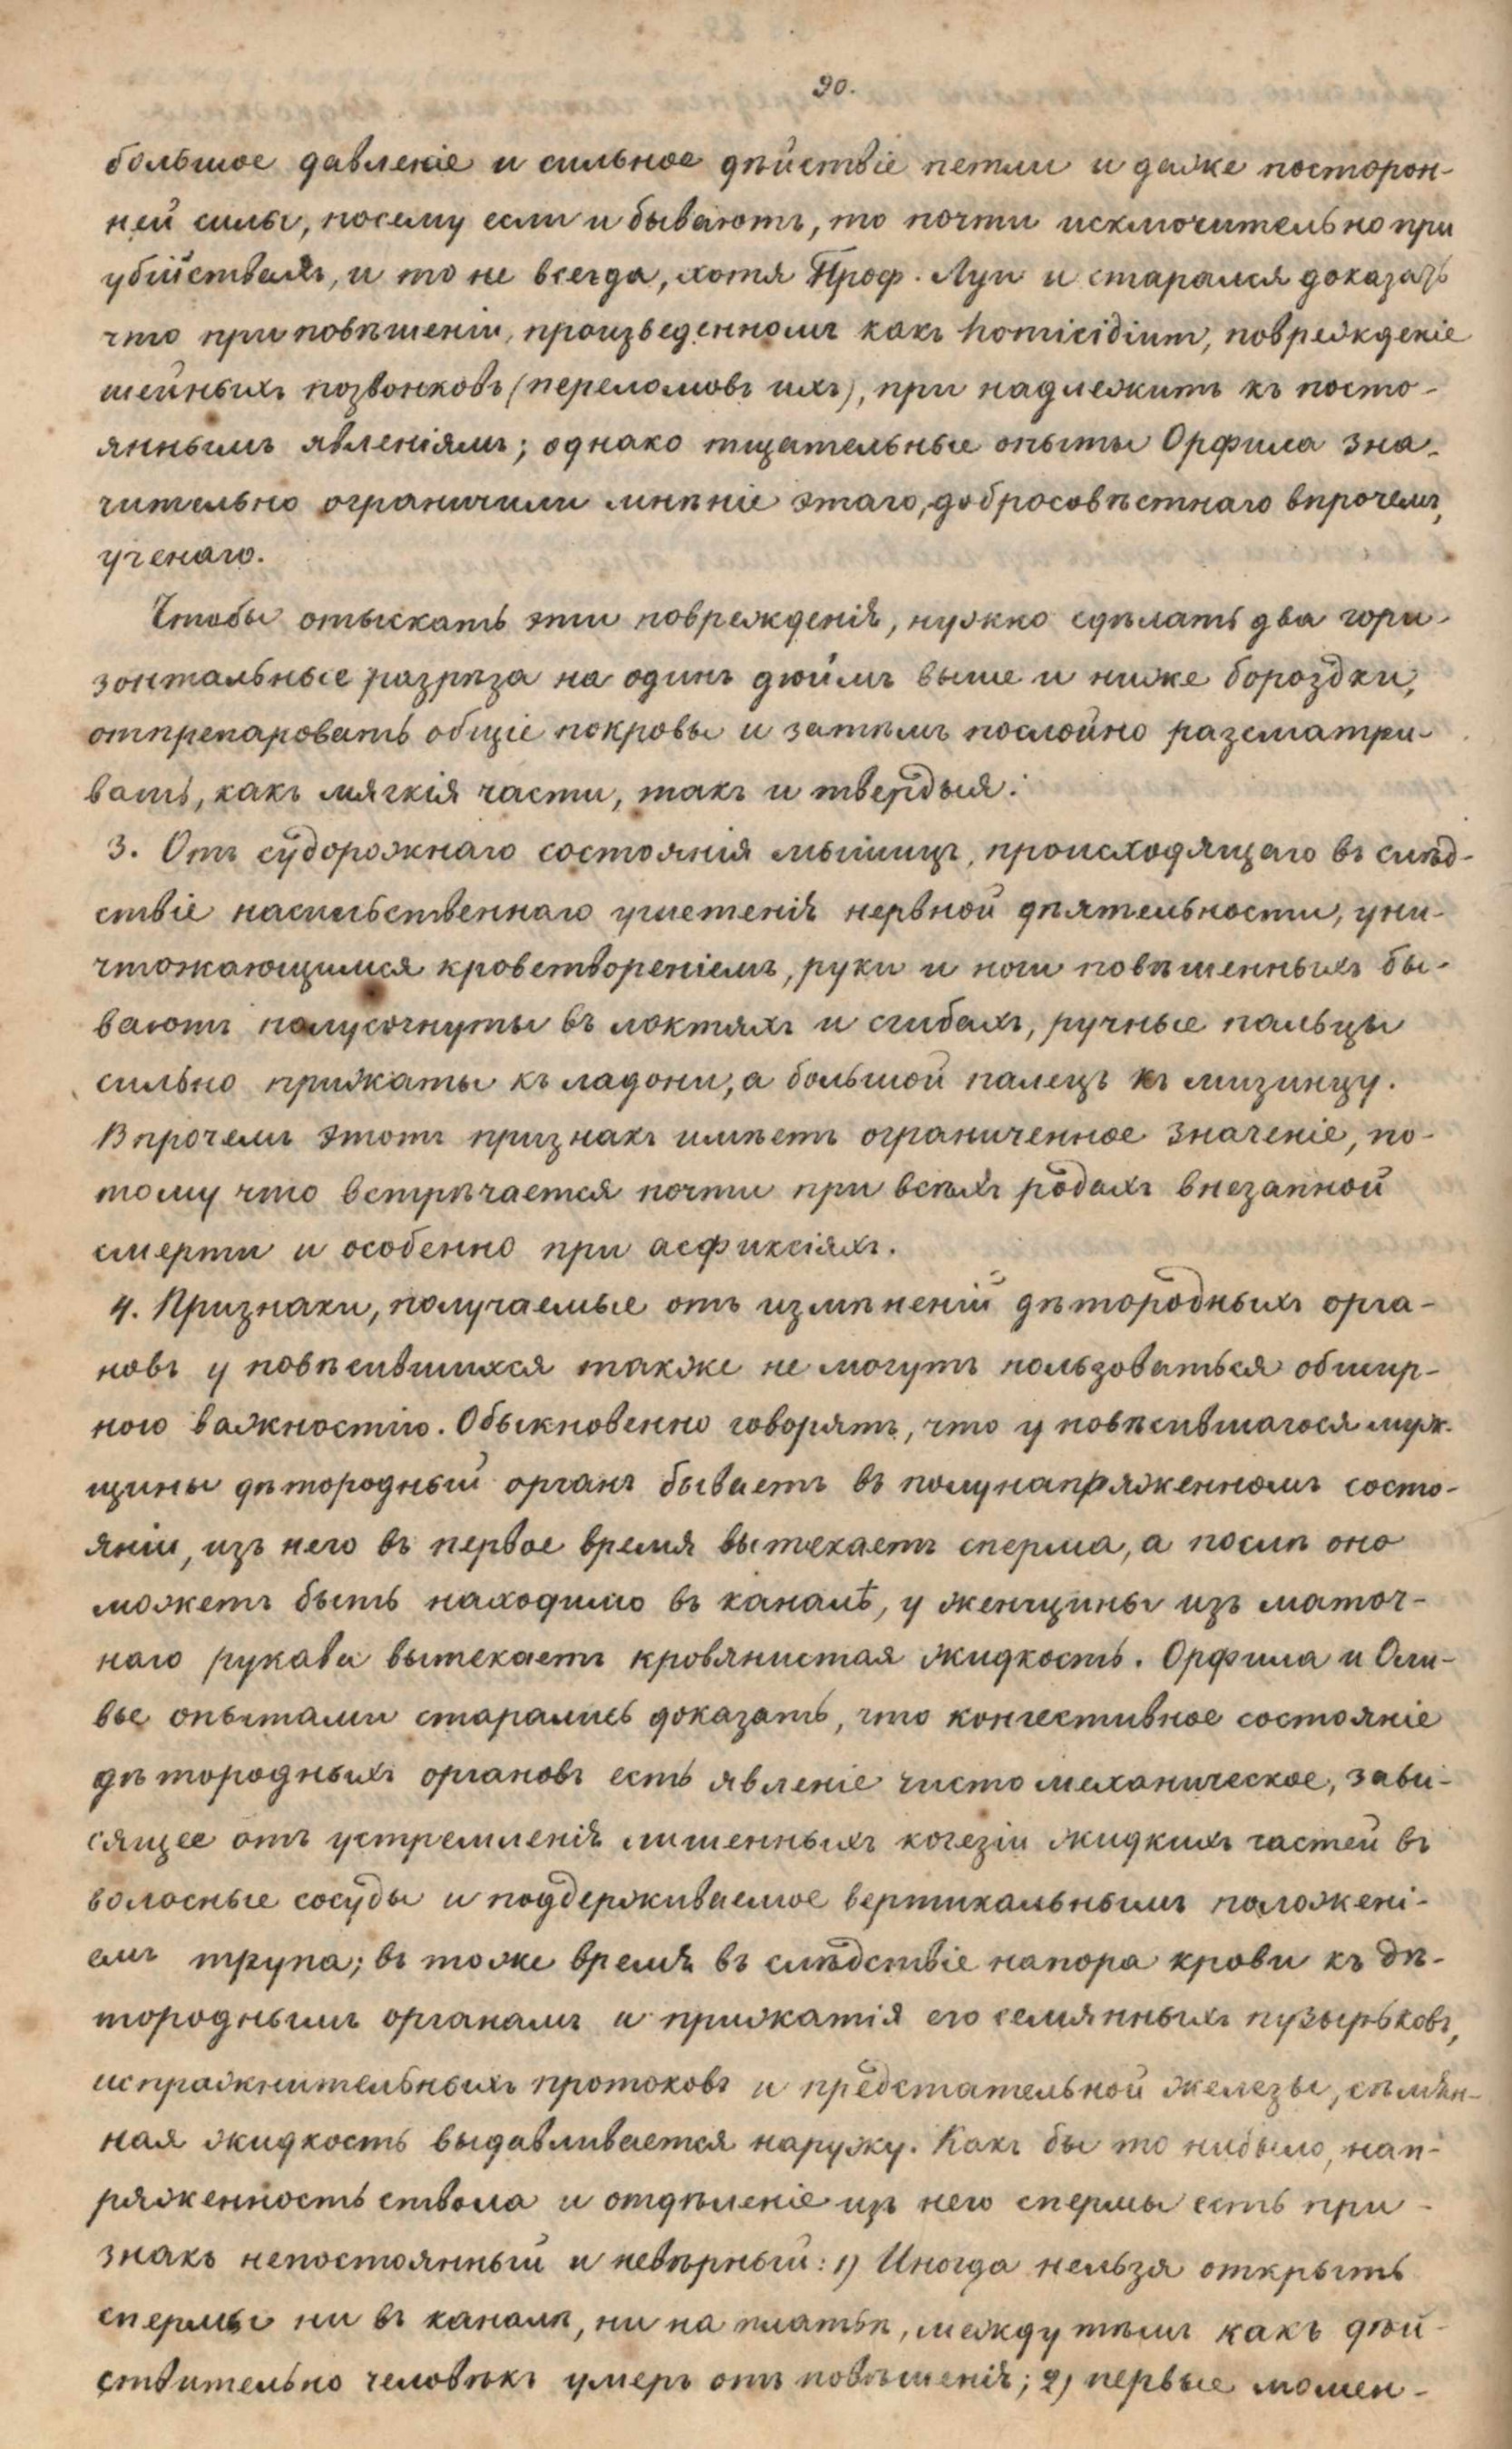 90.
большое давленіе и сильное дѣйствіе петли и даже посторон-
ней силы, посему если и бываютъ, то почти исключительно при
убійствахъ, и то не всегда, хотя Проф. Луи и старался доказать
что при повѣшеніи, произведенномъ какъ homicidium, поврежденіе
шейныхъ позвонковъ (переломовъ ихъ), при надлежитъ къ посто-
яннымъ явленіямъ; однако тщательные опыты Орфила зна-
чительно ограничили мнѣніе этаго, добросовѣстнаго впрочемъ,
ученаго.
Чтобы отыскать эти поврежденія, нужно сдѣлать два гори-
зонтальные разрѣза на одинъ дюймъ выше и ниже бороздки,
отпрепаровать общіе покровы и затѣмъ послойно разсматри-
вать, какъ мягкія части, такъ и твердыя.
3. Отъ судорожнаго состоянія мышицъ, происходящаго въ слѣд-
ствіе насильственнаго угнетенія нервной дѣятельности, уни-
чтожающимся кроветвореніемъ, руки и ноги повѣшенныхъ бы-
ваютъ полусогнуты въ локтяхъ и сгибахъ, ручные пальцы
сильно прижаты къ ладони, а большой палецъ къ мизинцу.
Впрочемъ этотъ признакъ имѣетъ ограниченное значеніе, по-
тому что встрѣчается почти при всѣхъ родахъ внезапной
смерти и особенно при асфиксіяхъ.
4. Признаки, получаемые отъ измѣненій дѣтородныхъ орга-
новъ у повѣсившихся также не могутъ пользоваться обшир-
ною важностію. Обыкновенно говорятъ, что у повѣсившагося муж-
щины дѣтородный органъ бываетъ въ полунапряженномъ состо-
яніи, изъ него въ первое время вытекаетъ сперма, а послѣ оно
можетъ быть находимо въ каналѣ, у женщины изъ маточ-
наго рукава вытекаетъ кровянистая жидкость. Орфила и Оли-
вье опытами старались доказать, что конгестивное состояніе
дѣтородныхъ органовъ есть явленіе чисто механическое, зави-
сящее отъ устремленія лишенныхъ когезіи жидкихъ частей въ
волосные сосуды и поддерживаемое вертикальнымъ положені-
емъ трупа; въ тоже время въ слѣдствіе напора крови къ дѣ-
тороднымъ органамъ и прижатія его семянныхъ пузырьковъ,
испражнительныхъ протоковъ и предстательной железы, сѣмян-
ная жидкость выдавливается наружу. Какъ бы то нибыло, нап-
ряженность ствола и отдѣленіе изъ него спермы есть при-
знакъ непостоянный и невѣрный: 1) Иногда нельзя открыть
спермы ни въ каналѣ, ни на платьѣ, между тѣмъ какъ дѣй-
ствительно человѣкъ умеръ отъ повѣшенія; 2) первые момен-